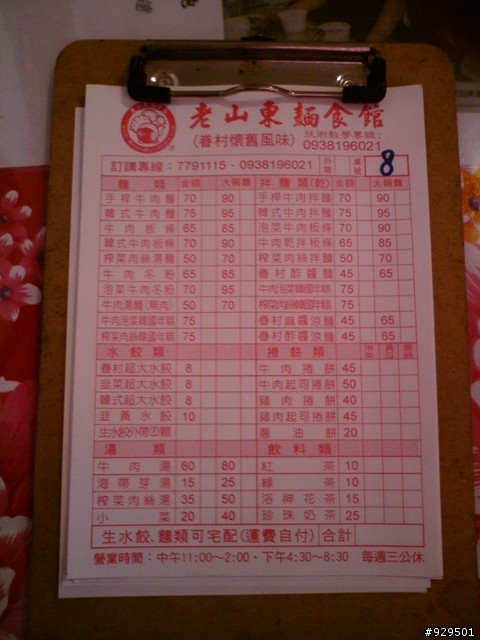 老山東麵食館
(眷村懷舊風味) 技術教學專線：
0938196021
訂購專線：7791115-0938196021 外帶 桌號 8
麵類 金額 大碗麵 拌麵類(乾) 金額 大碗麵
手桿牛肉麵 70 90 手桿牛肉拌麵 70 90
韓式牛肉麵 75 95 韓式牛肉拌麵 75 95
牛肉板條 70 90 泡菜牛肉板條 70 90
韓式牛肉板條 70 90 牛肉乾拌板條 65 85
榨菜肉絲湯麵 50 70 榨菜肉絲拌麵 50 70
牛肉冬粉 65 85 眷村酢醬麵 45 65
泡菜牛肉冬粉 70 95 牛肉泡菜韓國年糕 75
牛肉湯麵(無肉) 50 70 榨菜肉絲韓國年糕 75
牛肉泡菜韓國年糕 75 眷村麻醬涼麵 45 65
榨菜肉絲韓國年糕 75 眷村酢醬涼麵 45 65
水餃類 捲餅類
眷村超大水餃 8 牛肉捲餅 45
韭菜超大水餃 8 牛肉起司捲餅 50
韓式超大水餃 8 豬肉捲餅 40
韭黃水餃 10 豬肉起司捲餅 45
生水餃外帶20顆 蔥油餅 20
湯類 飲料類
牛肉湯 60 80 紅茶 10
海帶芽湯 15 25 綠茶 10
榨菜肉絲湯 35 50 洛神花茶 15
小菜 20 40 珍珠奶茶 25
生水餃、麵類可宅配(運費自付) 合計
營業時間：中午11:00~2:00、下午4:30~8:30 每週三公休
#929501